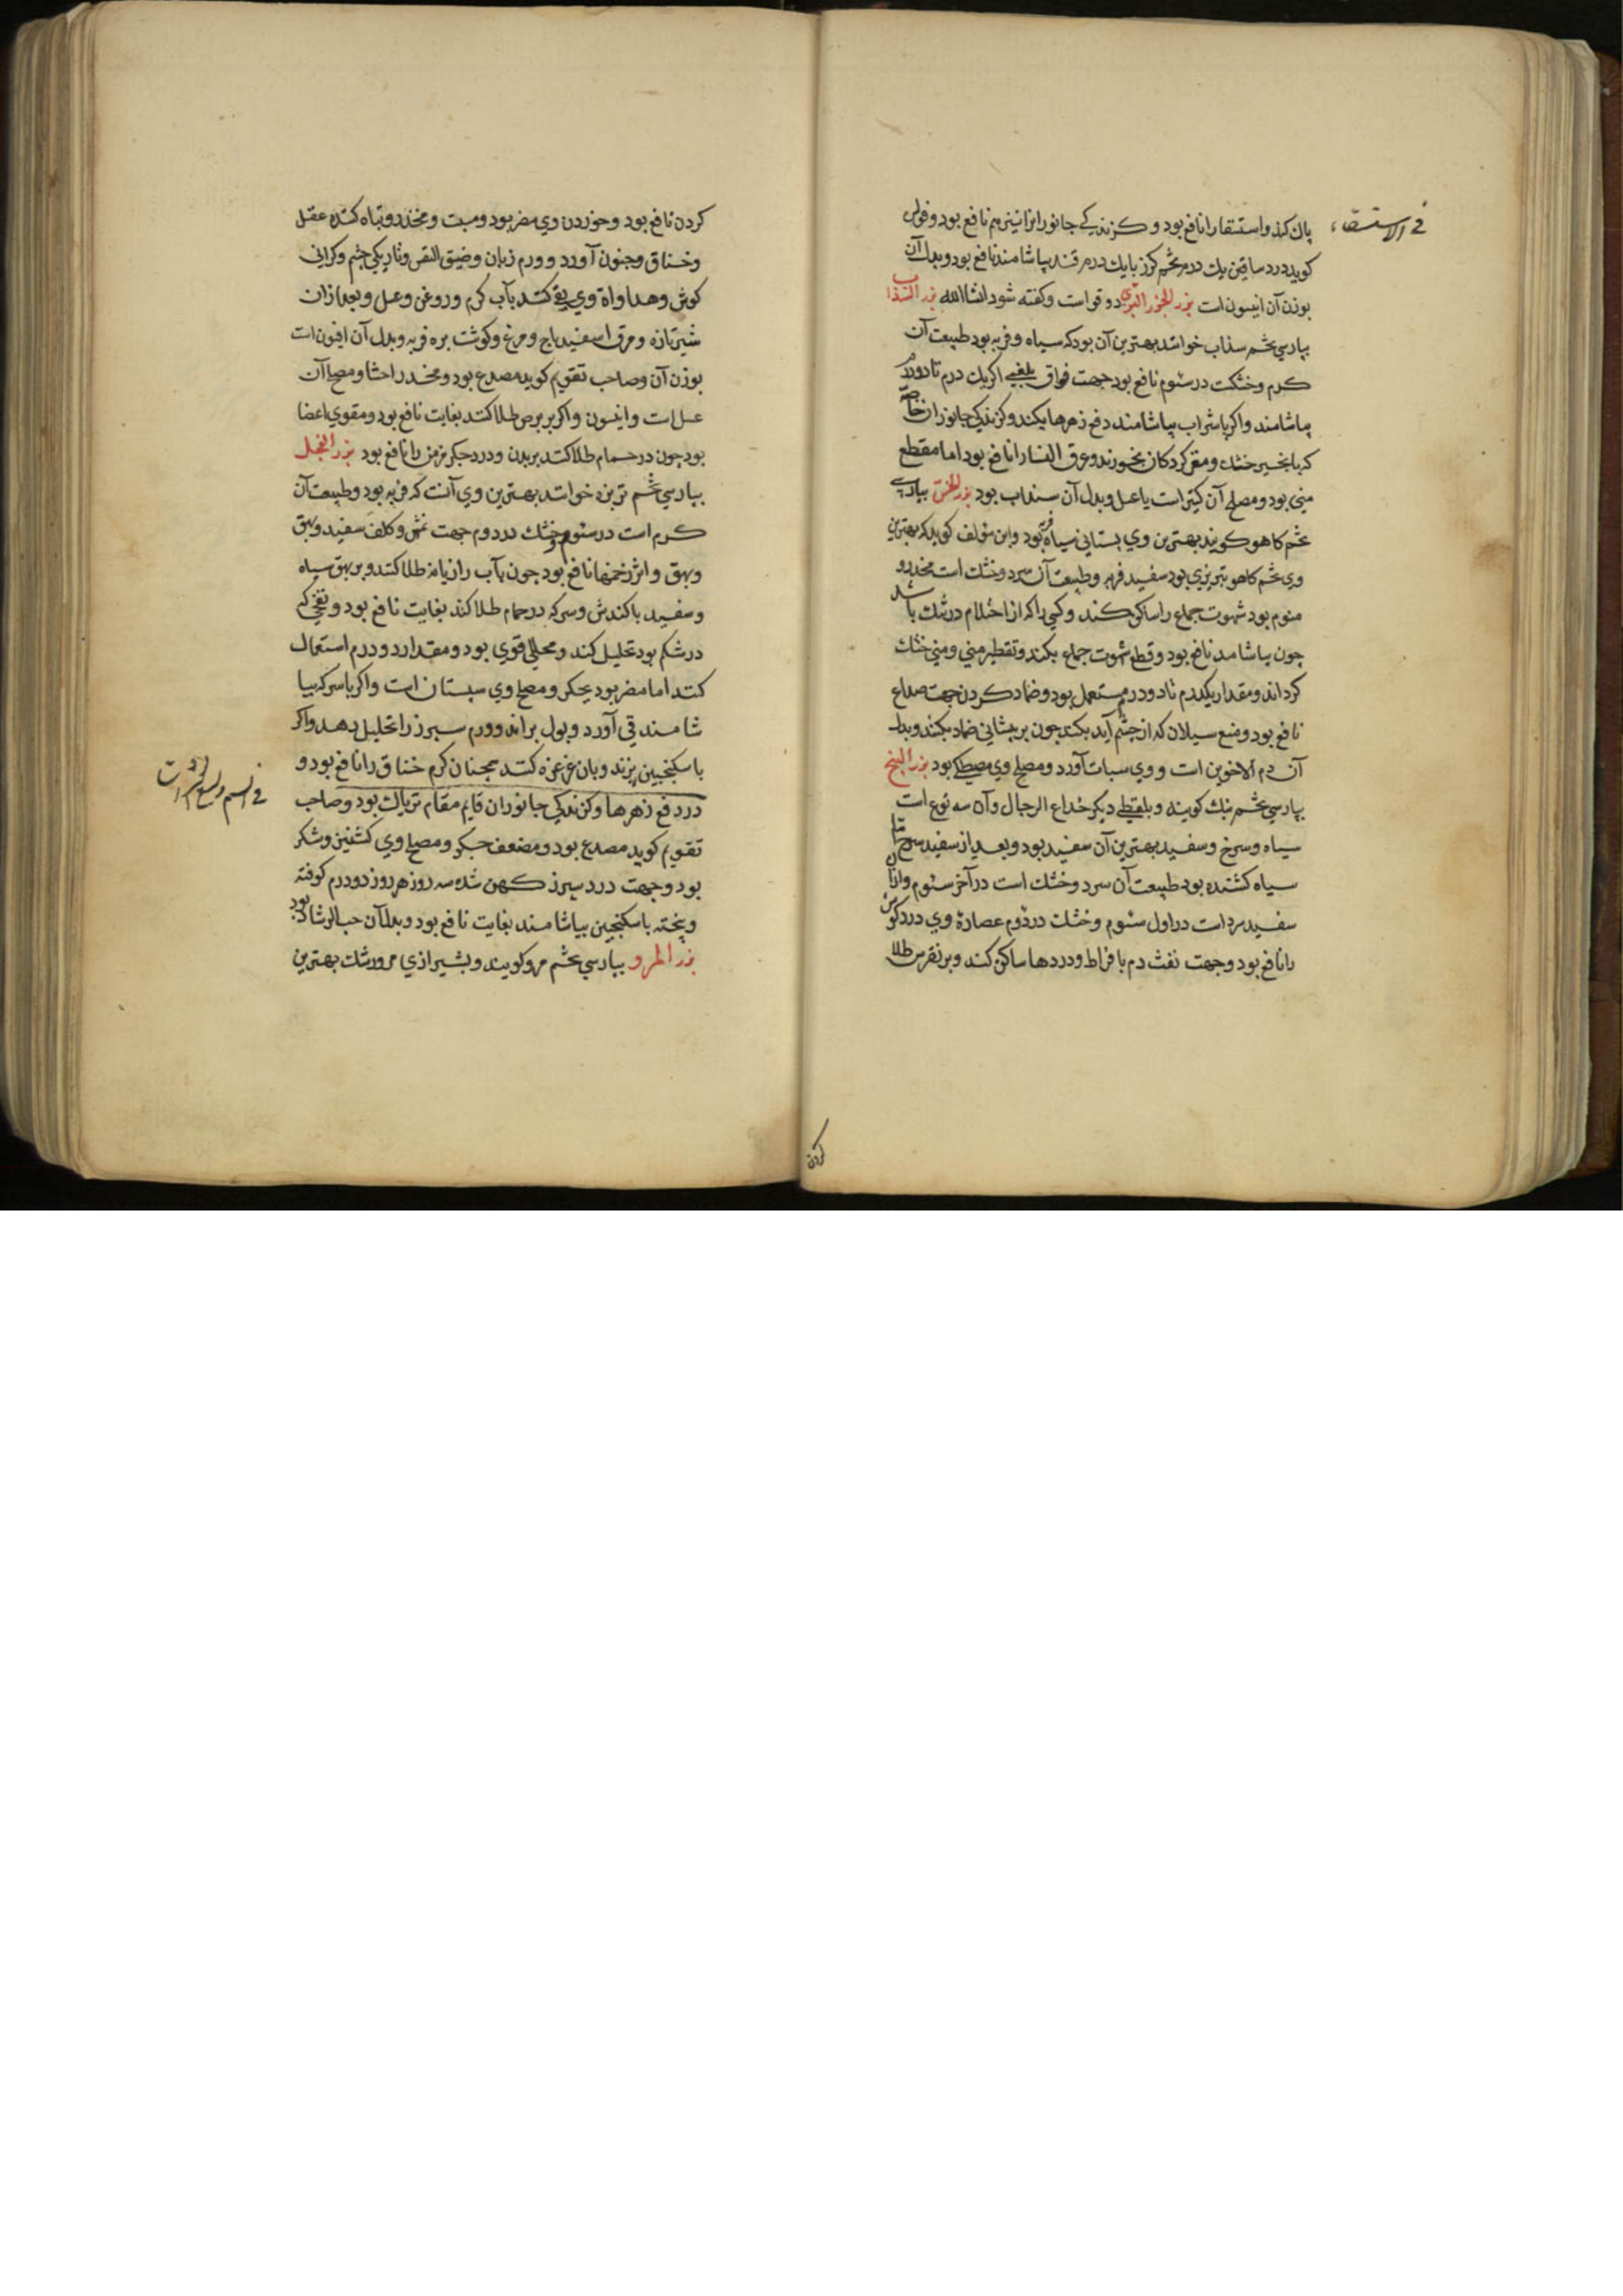 في الاستسقاء
پاك كند واستسقا را نافع بود و كزندكي جانورانرا نيز هم نافع بود و فولس
كويد درد ساقين يك درم تخم كرز با يك درم قند بياشامند نافع بود و بدل آن
بوزن آن انيسون است بزر الجزر البري دوقو است وكفته شود انشاالله بزر السذاب
بپارسي تخم سذاب خوانند بهترين آن بود كه سياه و فربه بود طبيعت آن
كرم وخشكت در سئوم نافع بود جهت فواق بلغمي اكر يك درم تا دو درم
بياشامند واكر با شراب بياشامند دفع زهرها بكند وكزندكي جانوران خاصه
كه با انجير خشك ومغز كردكان بخورند وعرق النسا را نافع بود اما مقطع
مني بود و مصلح آن كتيراست يا عسل وبدل آن سنداب بود بزر الخس بپارسي
تخم كاهو كويند بهترين وي بستاني سياه بود و ابن مؤلف كويد كه بهترين
وي تخم كاهو تبريزي بود سفيد فربه و طبيعت آن سرد و خشك است مخدر و
منوم بود شهوت جماع را ساكن كند و كسي را كه از احتلام در رشك باشد
چون بياشامد نافع بود و قطع شهوت جماع بكند و تقطير مني و مني خشك
كرداند و مقدار يكدرم تا دو درم مستعمل بود و ضماد كردن جهت صداع
نافع بود و منع سيلان كه از چشم آيد بكند چون بر پيشاني ضماد بكنند و بدل
آن دم الاخوين است و وي سبات آورد و مصلح وي مصطكي بود بزر البنج
بپارسي تخم بنك كويند و بلفظي ديكر خداع الرجال و آن سه نوع است
سياه و سرخ و سفيد بهترين آن سفيد بود و بعد از سفيد سرخ اما
سياه كشنده بود طبيعت آن سرد و خشك است در آخر سئوم و از آن
سفيد سرد است در اول سئوم و خشك در دوم عصارهٔ وي درد كوش
را نافع بود و جهت نفث دم با فراط و دردها ساكن كند و بر نقرس طلا
كردن
كردن نافع بود و خوردن وي مضر بود و مسبت و مخدر و تباه كننده عقل
و خناق و جنون آورد و ورم زبان و ضيق النفس و تاريكي چشم و كراني
كوش و مداواة وي بقي كنند بآب كرم و روغن و عسل و بعد از ان
شير تازه و مرق اسفيدباج و مرغ و كوشت بره فربه و بدل آن افيون است
بوزن آن و صاحب تقويم كويد مصدع بود و مخدر احشا و مصلح آن
عسل است و انيسون واكر بر برص طلا كنند بغايت نافع بود و مقوي اعضا
بود چون در حمام طلا كنند بر بدن و درد جكر مزمن را نافع بود بزر الفجل
بپارسي تخم ترب خوانند بهترين وي آنست كه فربه بود و طبيعت آن
كرم است در سئوم و خشك در دوم جهت نمش و كلف سفيد و بهق
و بهق و اثر زخمها نافع بود چون بآب رازيانه طلا كنند و بر بهق سياه
و سفيد با كندش و سركه در حمام طلا كند بغايت نافع بود و نفخي كه
در شكم بود تحليل كند و محللي قوي بود و مقدار دو درم استعمال
كنند اما مضر بود بجكر و مصلح وي سپستان است و اكر با سركه بيا
شامند قي آورد و بول براند و ورم سپرز را تحليل دهد و اكر
با سكنجبين پزند و بان غرغره كنند همچنان كرم خناق را نافع بود و
در دفع زهرها و كزندكي جانوران قايم مقام ترياك بود و صاحب
في السم ولسع الحشرات
تقويم كويد مصدع بود و مضعف جكر و مصلح وي كشنيز و شكر
بود و جهت درد سپرز كهن شده سه روز هر روز دو درم كوفته
و پخته با سكنجبين بياشامند بغايت نافع بود و بدل آن حب الرشاد بود
بزر المرو بپارسي تخم مرو كويند و بشيرازي مرورشك بهترين